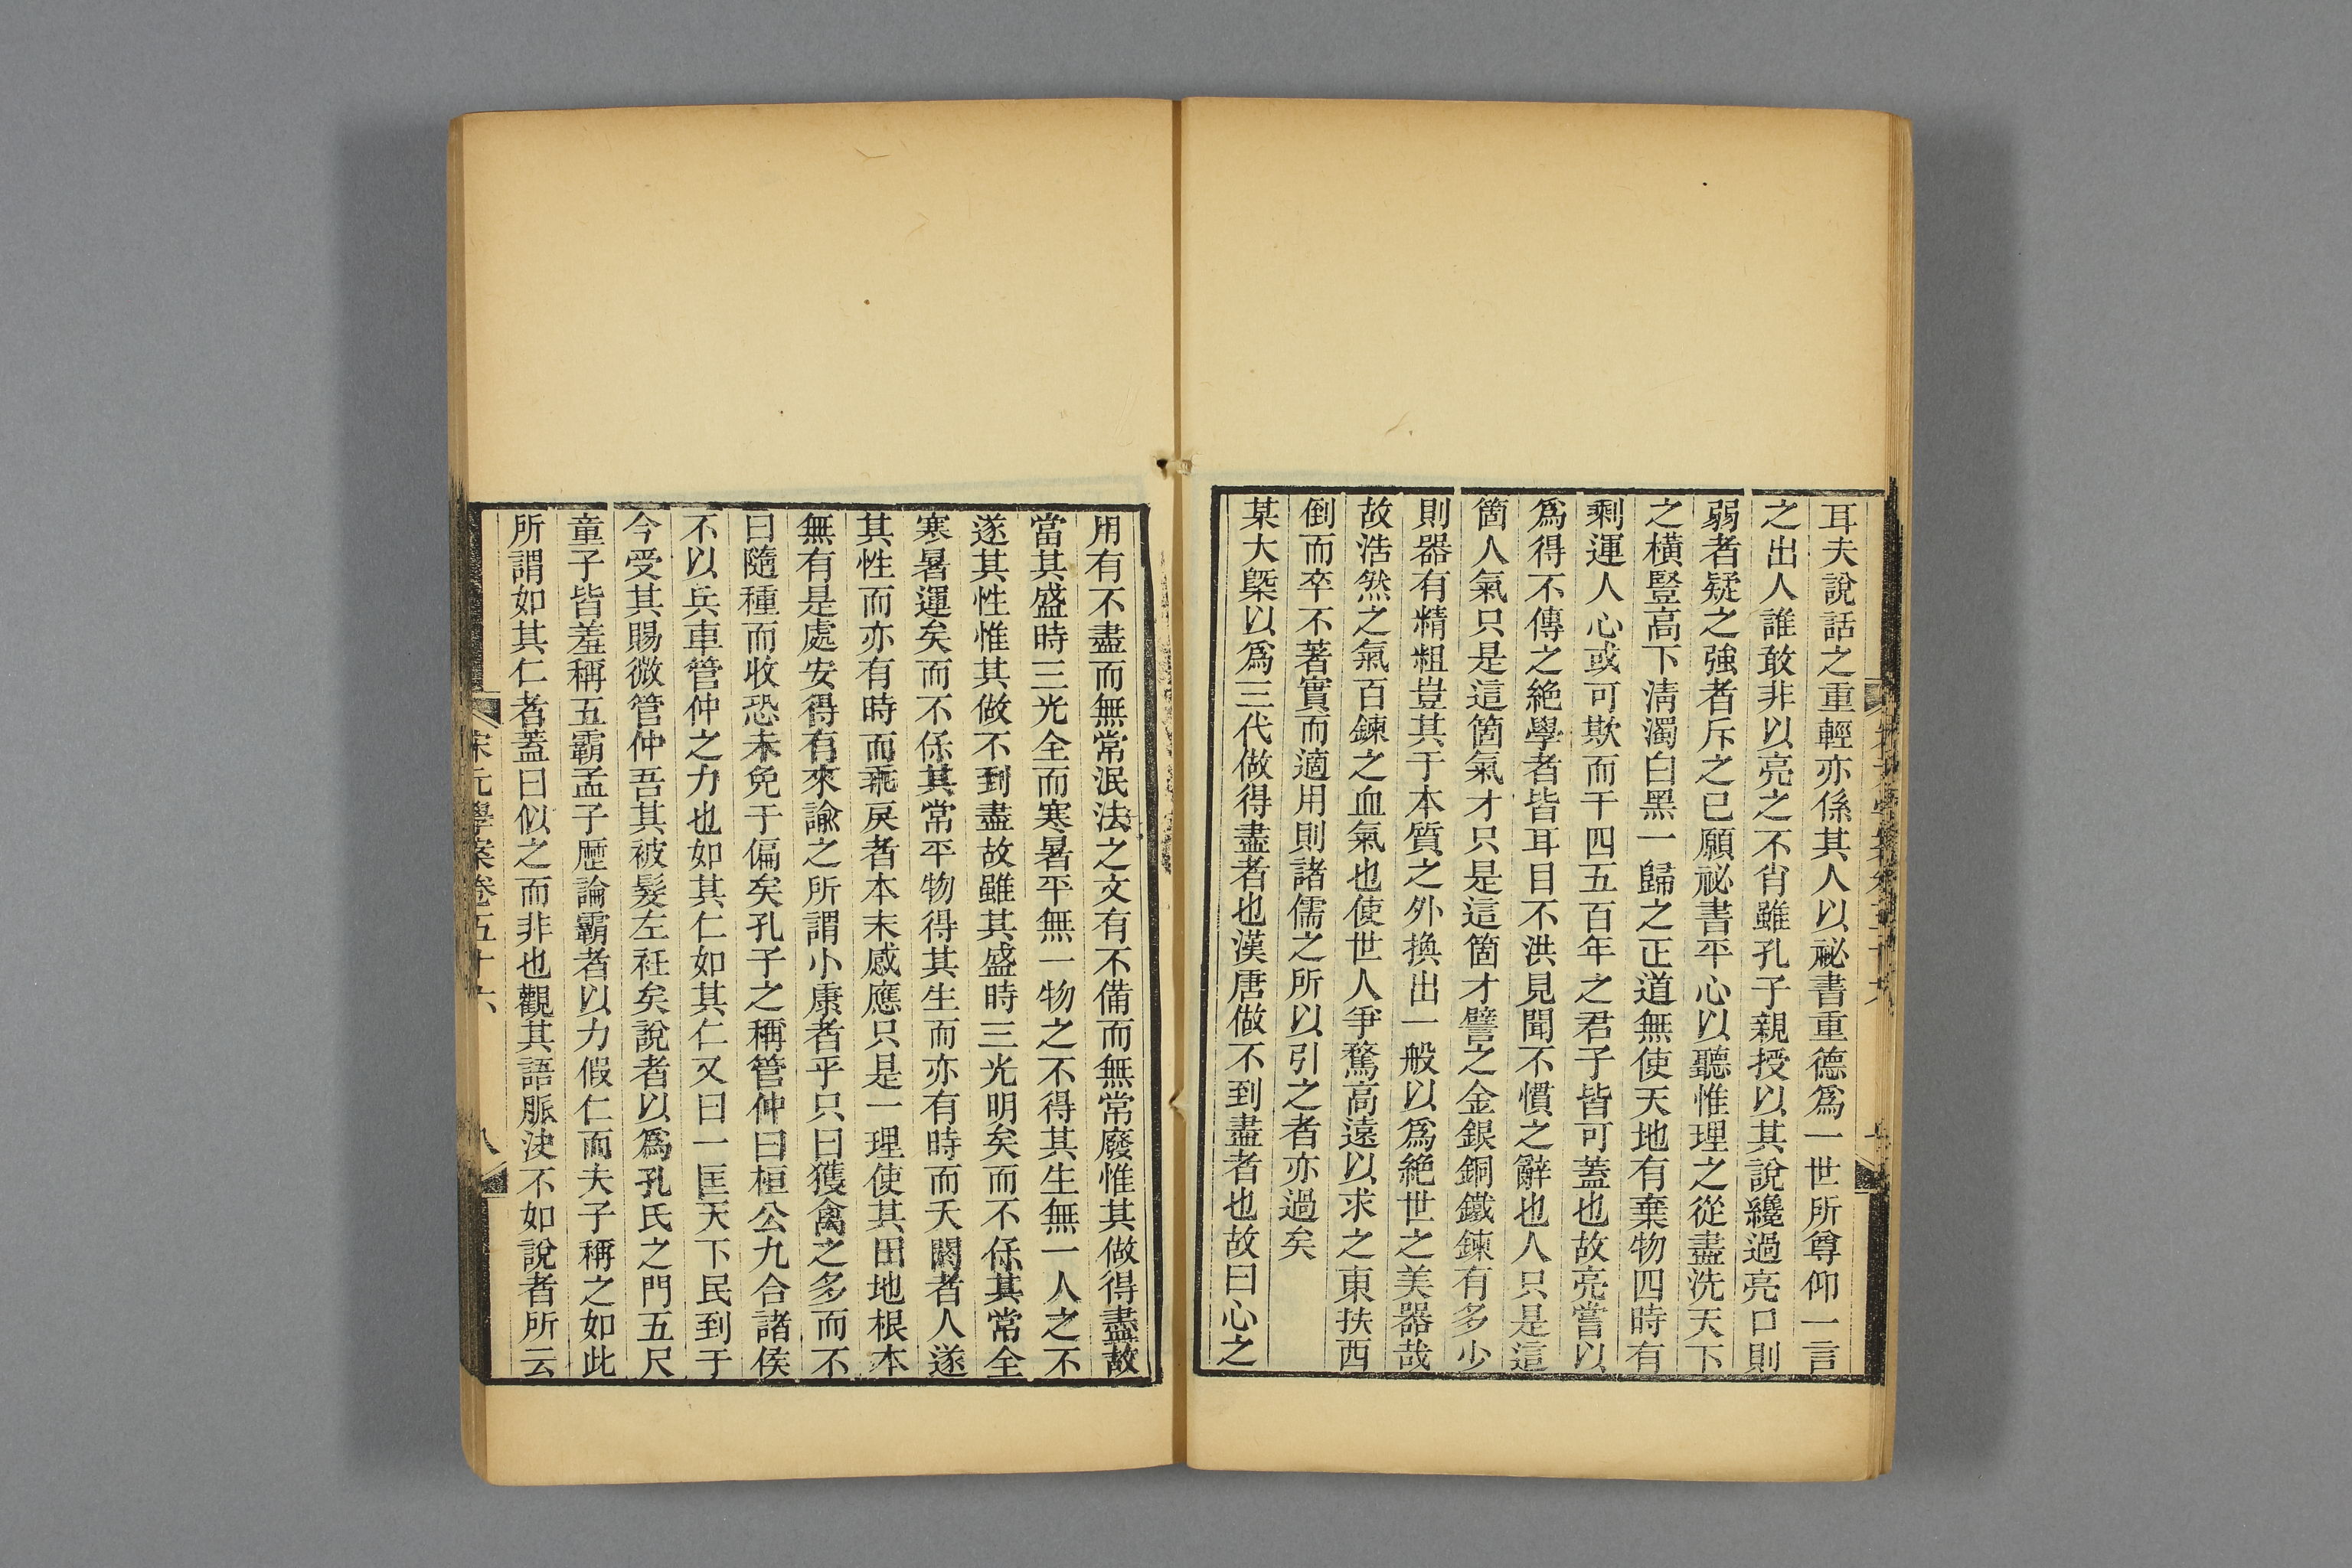 耳夫說話之重輕亦係其人以祕書重德爲一世所尊仰一言
之出人誰敢非以亮之不肖雖孔子親授以其說纔過亮口則
弱者疑之強者斥之已願祕書平心以聽惟理之從盡洗天下
之橫豎高下淸濁白黑一歸之正道無使天地有棄物四時有
剩運人心或可欺而千四五百年之君子皆可蓋也故亮嘗以
爲得不傳之絶學者皆耳目不洪見聞不慣之辭也人只是這
箇人氣只是這箇氣才只是這箇才譬之金銀銅鐵鍊有多少
則器有精粗豈其于本質之外換出一般以爲絶世之美器哉
故浩然之氣百鍊之血氣也使世人爭騖高遠以求之東扶西
倒而卒不著實而適用則諸儒之所以引之者亦過矣
某大槩以爲三代做得盡者也漢唐做不到盡者也故曰心之
用有不盡而無常泯法之文有不備而無常廢惟其做得盡故
當其盛時三光全而寒暑平無一物之不得其生無一人之不
遂其性惟其做不到盡故雖其盛時三光明矣而不保其常全
寒暑運矣而不保其常平物得其生而亦有時而夭閼者人遂
其性而亦有時而乖戾者本末感應只是一理使其田地根本
無有是處安得有來諭之所謂小康者乎只曰獲禽之多而不
曰隨種而收恐未免于偏矣孔子之稱管仲曰桓公九合諸侯
不以兵車管仲之力也如其仁如其仁又曰一匡天下民到于
今受其賜微管仲吾其被髮左衽矣說者以爲孔氏之門五尺
童子皆羞稱五霸孟子歷論霸者以力假仁而夫子稱之如此
所謂如其仁者蓋曰似之而非也觀其語脈決不如說者所云
宋元學案卷五十六
八